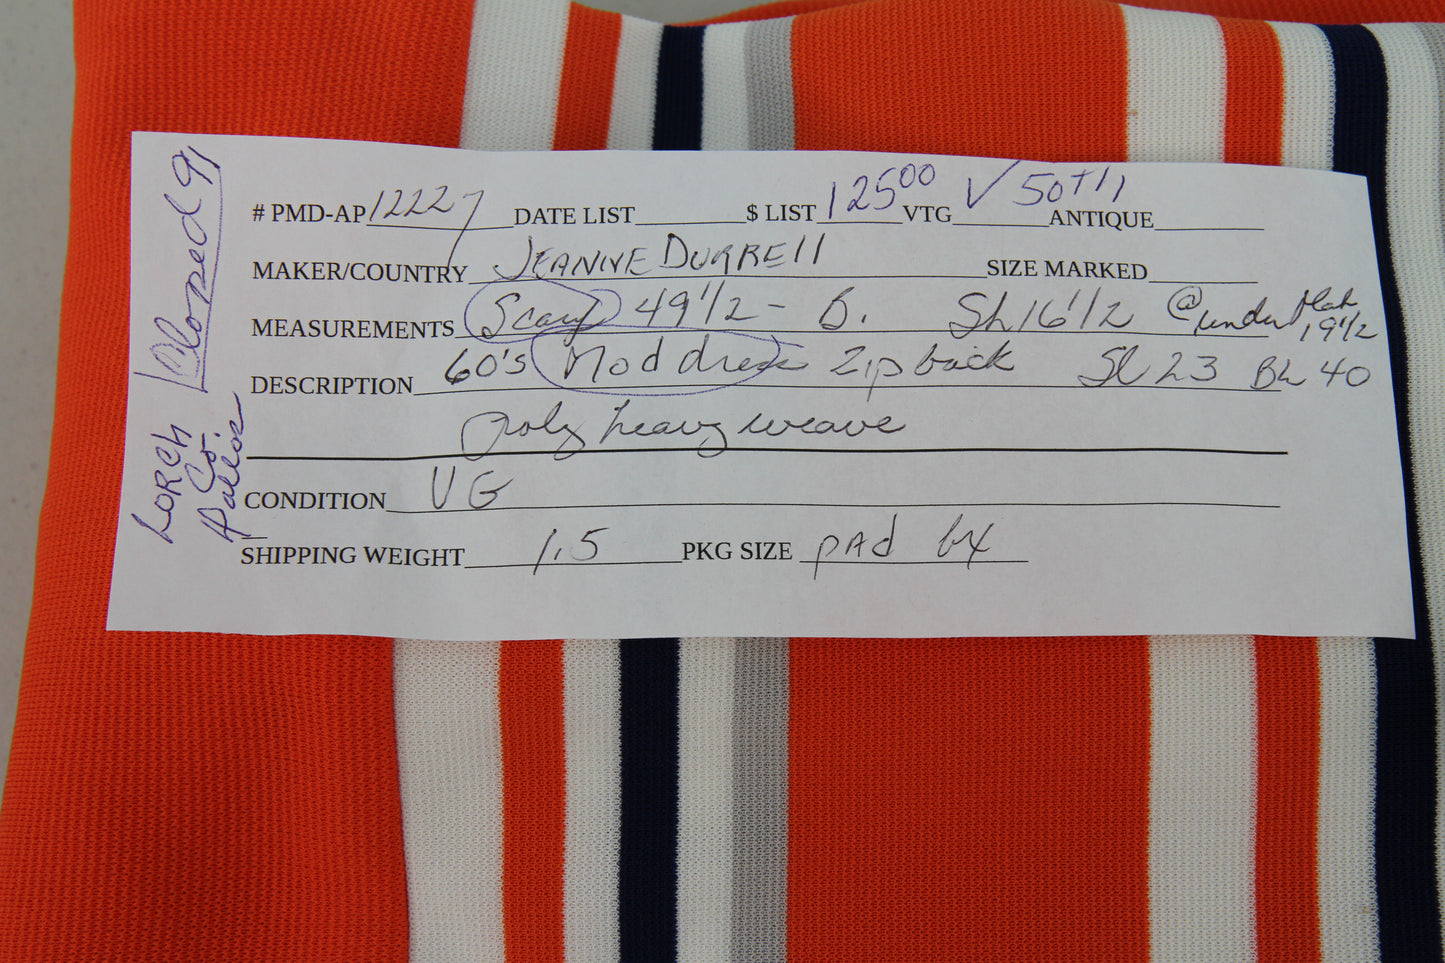 # PMD-AP 12227 DATE LIST $ LIST 125.00 VTG √ 50+ ANTIQUE
MAKER/COUNTRY JEANNE DURRELL SIZE MARKED
MEASUREMENTS Scarf 49 1/2 - B. Sh 16 1/2 @ under 19 1/2
DESCRIPTION 60's Mod dress Zip back Sl 23 BL 40
poly heavy weave
CONDITION VG
SHIPPING WEIGHT 1.5 PKG SIZE pAd bx
LORCH
Co.
Dallas
Closed 91